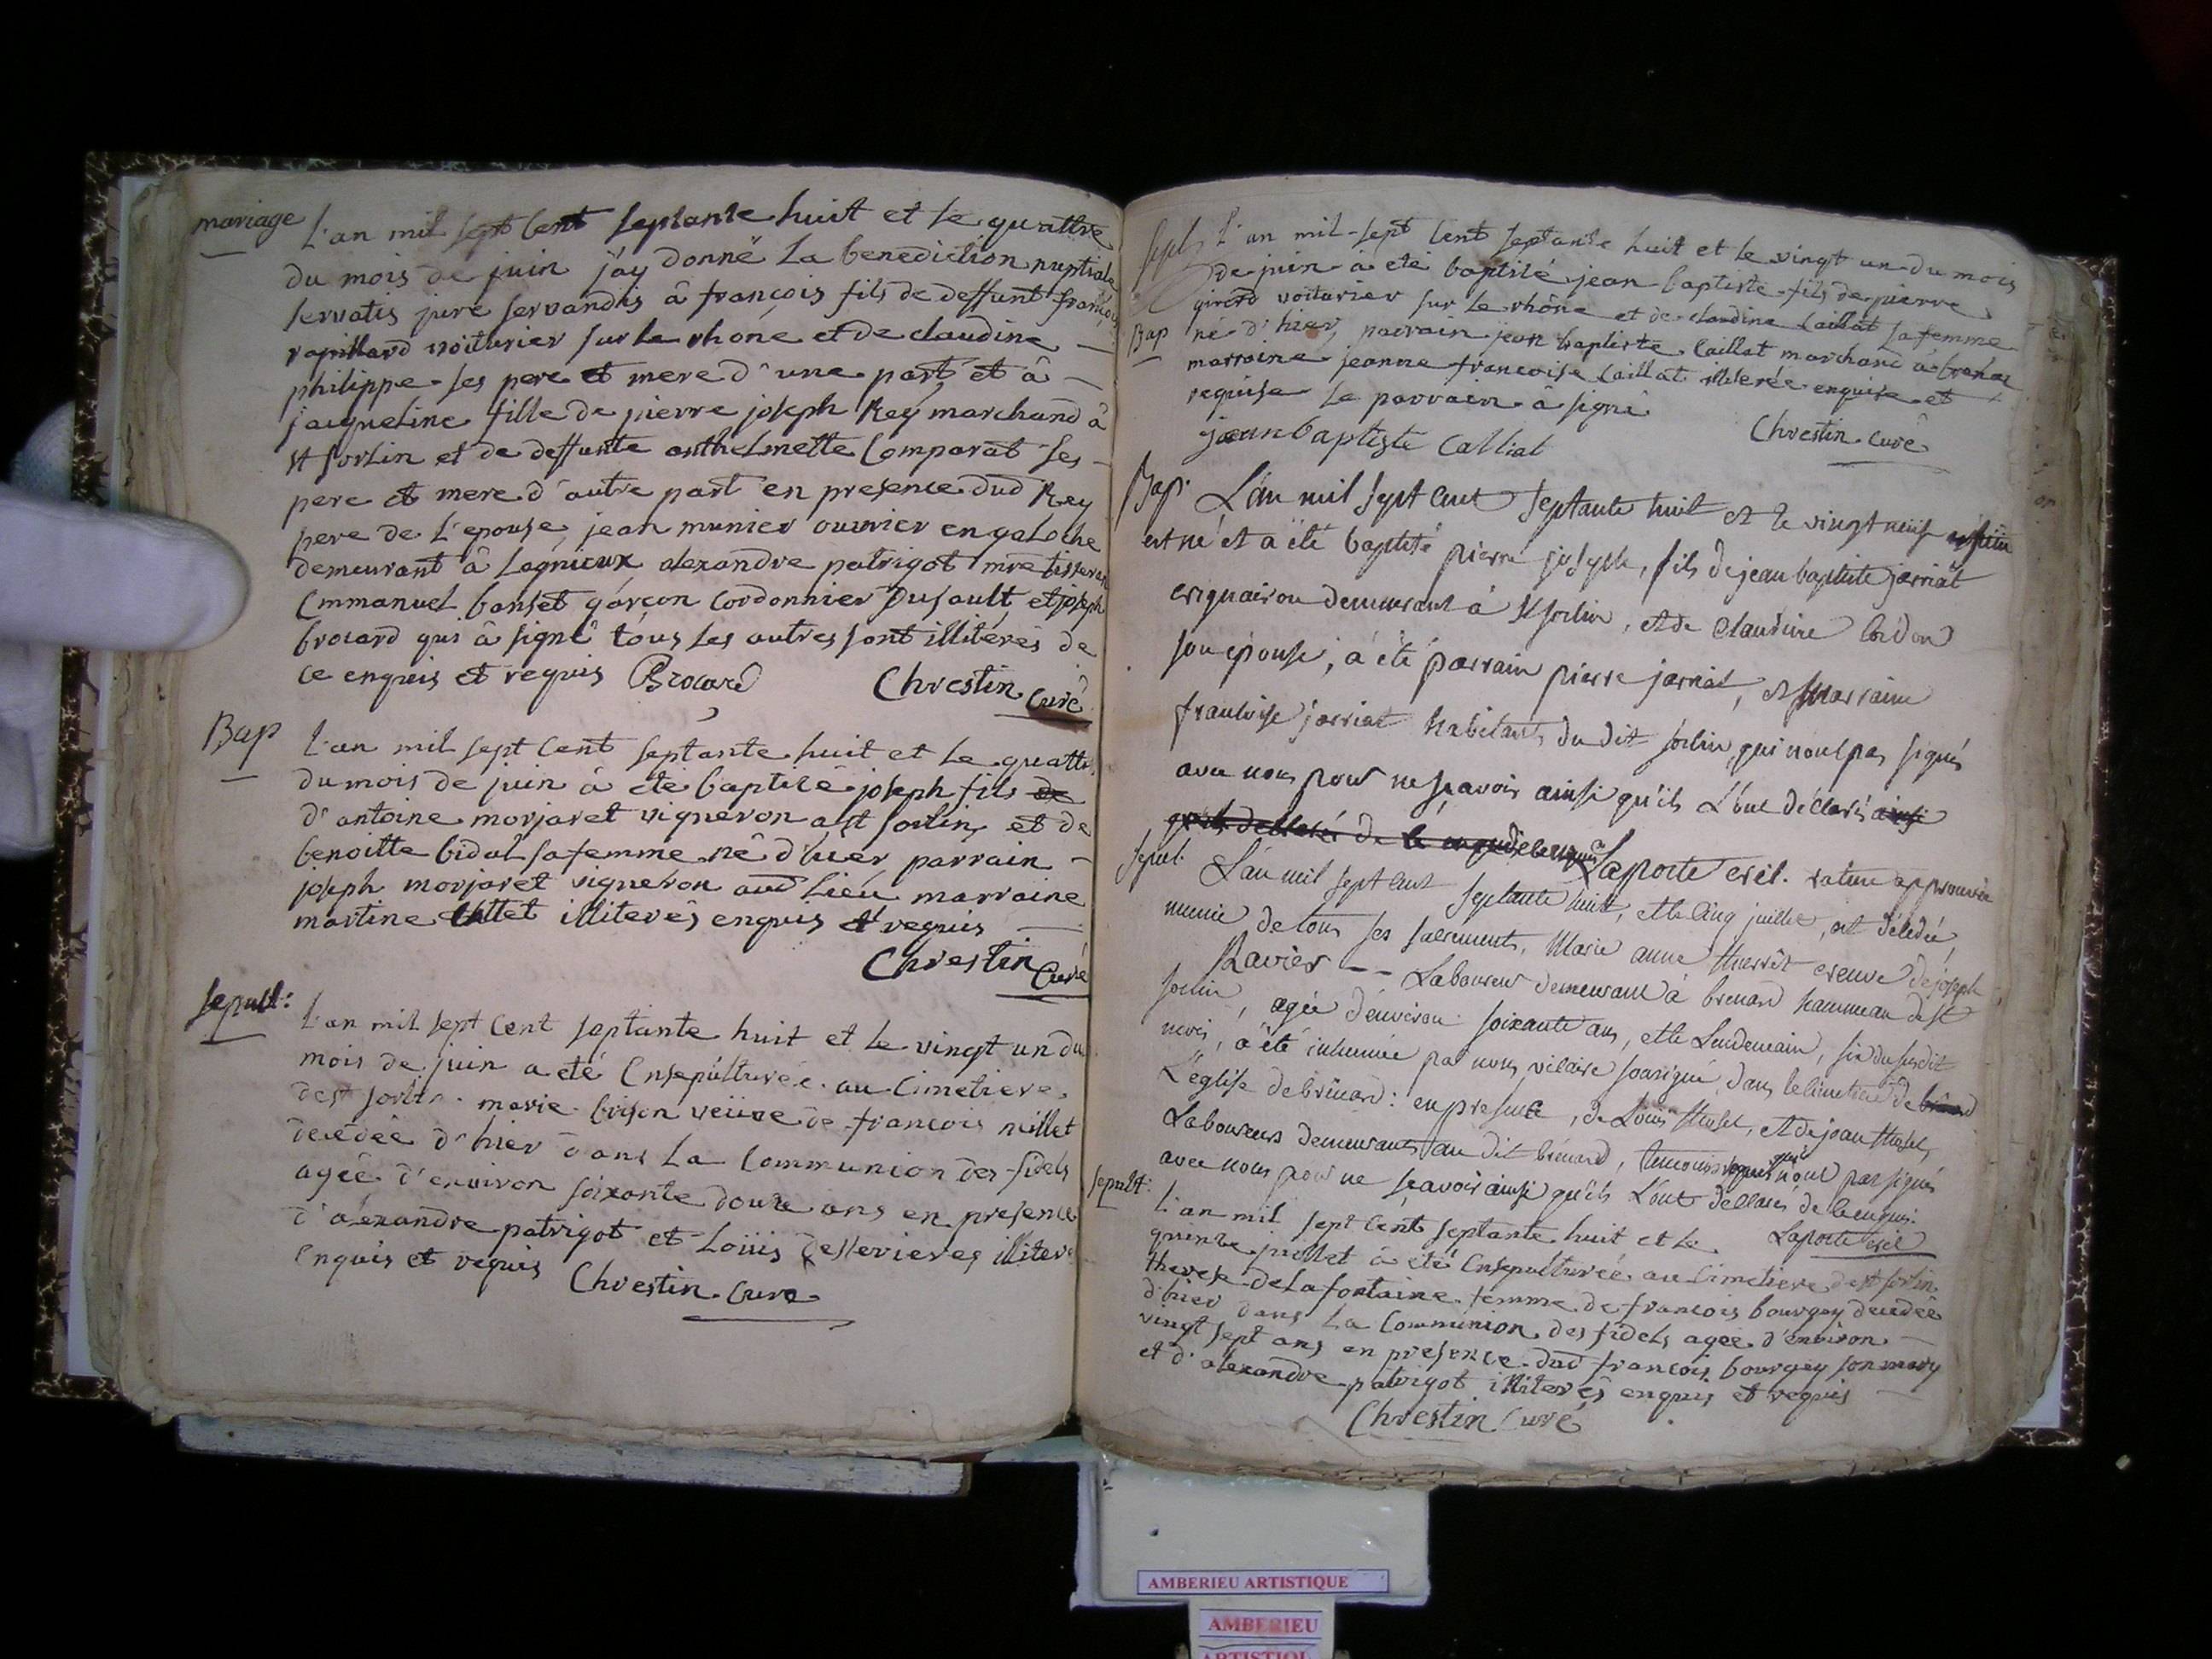 mariage
L'an mil sept cent septante huit et le quattre
du mois de juin j'ay donné la benediction nuptiale
servatis jure servandis à françois fils de deffunt françois
rapillard voiturier sur le rhône et de claudine
philippe ses pere et mere d'une part et à
jacqueline fille de pierre joseph Rey marchand à
st sorlin et de deffunte anthelmette Comparat ses
pere et mere d'autre part en presence dud Rey
pere de L'epouse, jean munier ouvrier en galoche
demeurant à Lagnieux alexandre patrigot mre tisseran
Emmanuel banset garçon cordonnier Dusault et joseph
brocard qui à signé tous les autres sont illitérés de
ce enquis et requis Brocard Chrestin Curé
Bap
L'an mil sept cent septante huit et le quattre
du mois de juin à été baptisé joseph fils de
d'antoine morjaret vigneron a st sorlin et de
benoitte bidal sa femme né d'hier parrain
joseph morjaret vigneron aud lieu marraine
martine illiterés enquis et requis
Chrestin Curé
sepult:
L'an mil sept cent septante huit et le vingt un du
mois de juin a été Ensepulturée au cimetiere
de st sorlin marie brison veüve de francois millet
decedée d'hier dans la communion des fidels
agée d'environ soixante douze ans en presence
d'alexandre patrigot et Loüis desserieres illiter
enquis et requis Chrestin Curé
sept
L'an mil sept cent septante huit et le vingt un du mois
de juin à été baptisé jean baptiste fils de pierre
girerd voiturier sur le rhône et de claudine Caillat sa femme
Bap
né d'hier, parrain jean baptiste Caillat marchand à
marraine jeanne francoise Caillat illiterée enquise et
requise le parrain à signé
jean baptiste Calliat Chrestin Curé
Bap.
L'an mil sept cent septante huit et le vingt neuf juin
est né et a été baptisé pierre joseph, fils de jean baptiste jarriat
vigneron demeurant à St sorlin, et de Claudine
son épouse, a été parrain pierre jarriat, et marraine
francoise jarriat habitants du dit sorlin, qui n'ont pas signés
avec nous pour ne sçavoir ainsi qu'ils L'ont déclaré ainsi
Laporte vic. rature approuvée
sepul.
L'an mil sept cent septante huit, et le cinq juillet, est décédée,
munie de tous ses sacrements, Marie anne veuve de joseph
Ravier -- Laboureur demeurant à brénard hammeau de st
sorlin, agée d'environ soixante ans, et le Lendemain, six du susdit
mois, a été inhumée par nous, vicaire soussigné, dans le cimetiere de
L'eglise de brénard: en presence, de Louis et de jean
Laboureurs demeurants au dit brénard, temoins requis qui n'ont pas signés
avec nous pour ne sçavoir ainsi qu'ils L'ont déclaré de ce enquis.
Laporte vic
sepult:
L'an mil sept cent septante huit et le
quinze juillet à été Ensepulturée au cimetiere de st sorlin
therese delafontaine femme de francois bourgey decedée
d'hier dans la communion des fidels agée d'environ
vingt sept ans en presence dud francois bourgey son mary
et d'alexandre patrigot illiterés enquis et requis
Chrestin Curé
AMBERIEU ARTISTIQUE
AMBERIEU
ARTISTIQU